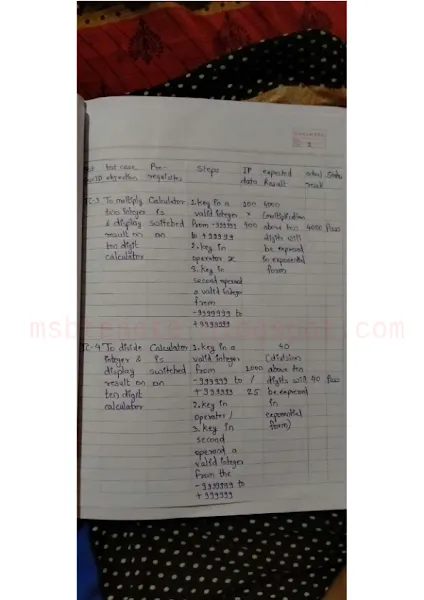 test case Pre- Steps IP expected actual Status
algorithm requisites data Result result
TC-3 To multiply Calculator 1. key in a 100 4000
two integer is valid integer x (multiplication
& display switched from -999999 400 above ten 4000 Pass
result on on to +999999 digits will
ten digit 2. key in be expresed
calculator operator x in exponential
3. key in form
second operand
a valid integer
from
-9999999 to
+999999
TC-4 To divide Calculator 1. key in a 40
integer & is valid integer (division
display switched from 1000 above ten
result on on -999999 to / digits will 40 Pass
ten digit +999999 25 be expresed
calculator 2. key in in
operator / exponential
3. key in form)
second
operand a
valid integer
from the
-9999999 to
+999999